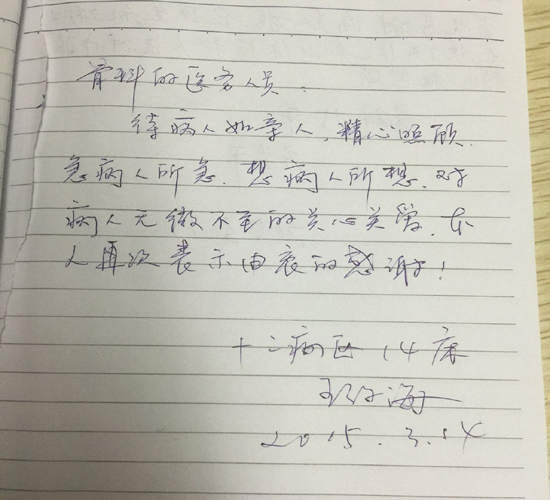 骨科的医务人员:
待病人如亲人,精心照顾.
急病人所急.想病人所想.对
病人无微不至的关心关爱.本
人再次表示由衷的感谢!
十二病区 14床
海
2015.3.14